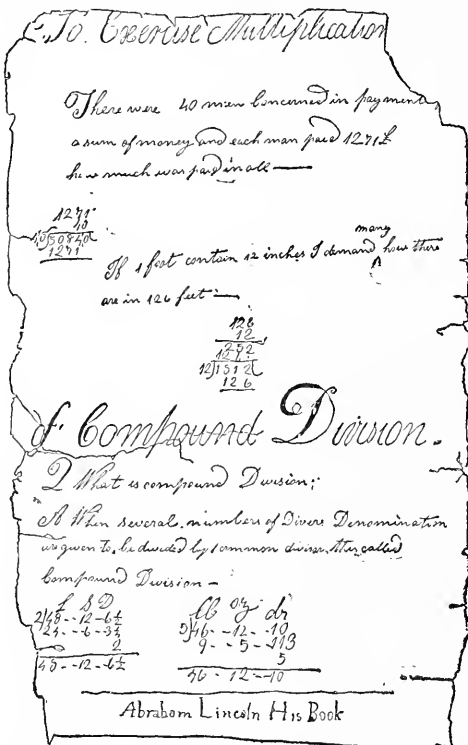 To Exercise Multiplication
There were 40 men Concerned in payment
a sum of money and each man paid 1271£
how much was paid in all
1271
40
40)50840(
1271
many
If 1 foot contain 12 inches I demand how there
^
are in 126 feet
126
12
252
126
12)1512(
126
of Compound Division.
Q What is compound Division;
A When several numbers of Divers Denomination
are given to be divided by 1 common divisor this called
Compound Division
£ S D
24 - - 6 - 3
2
lb oz dr
5)46 - - 12 - - 10
9 - - 5 - -
5
46 - 12 - - 10
Abraham Lincoln His Book